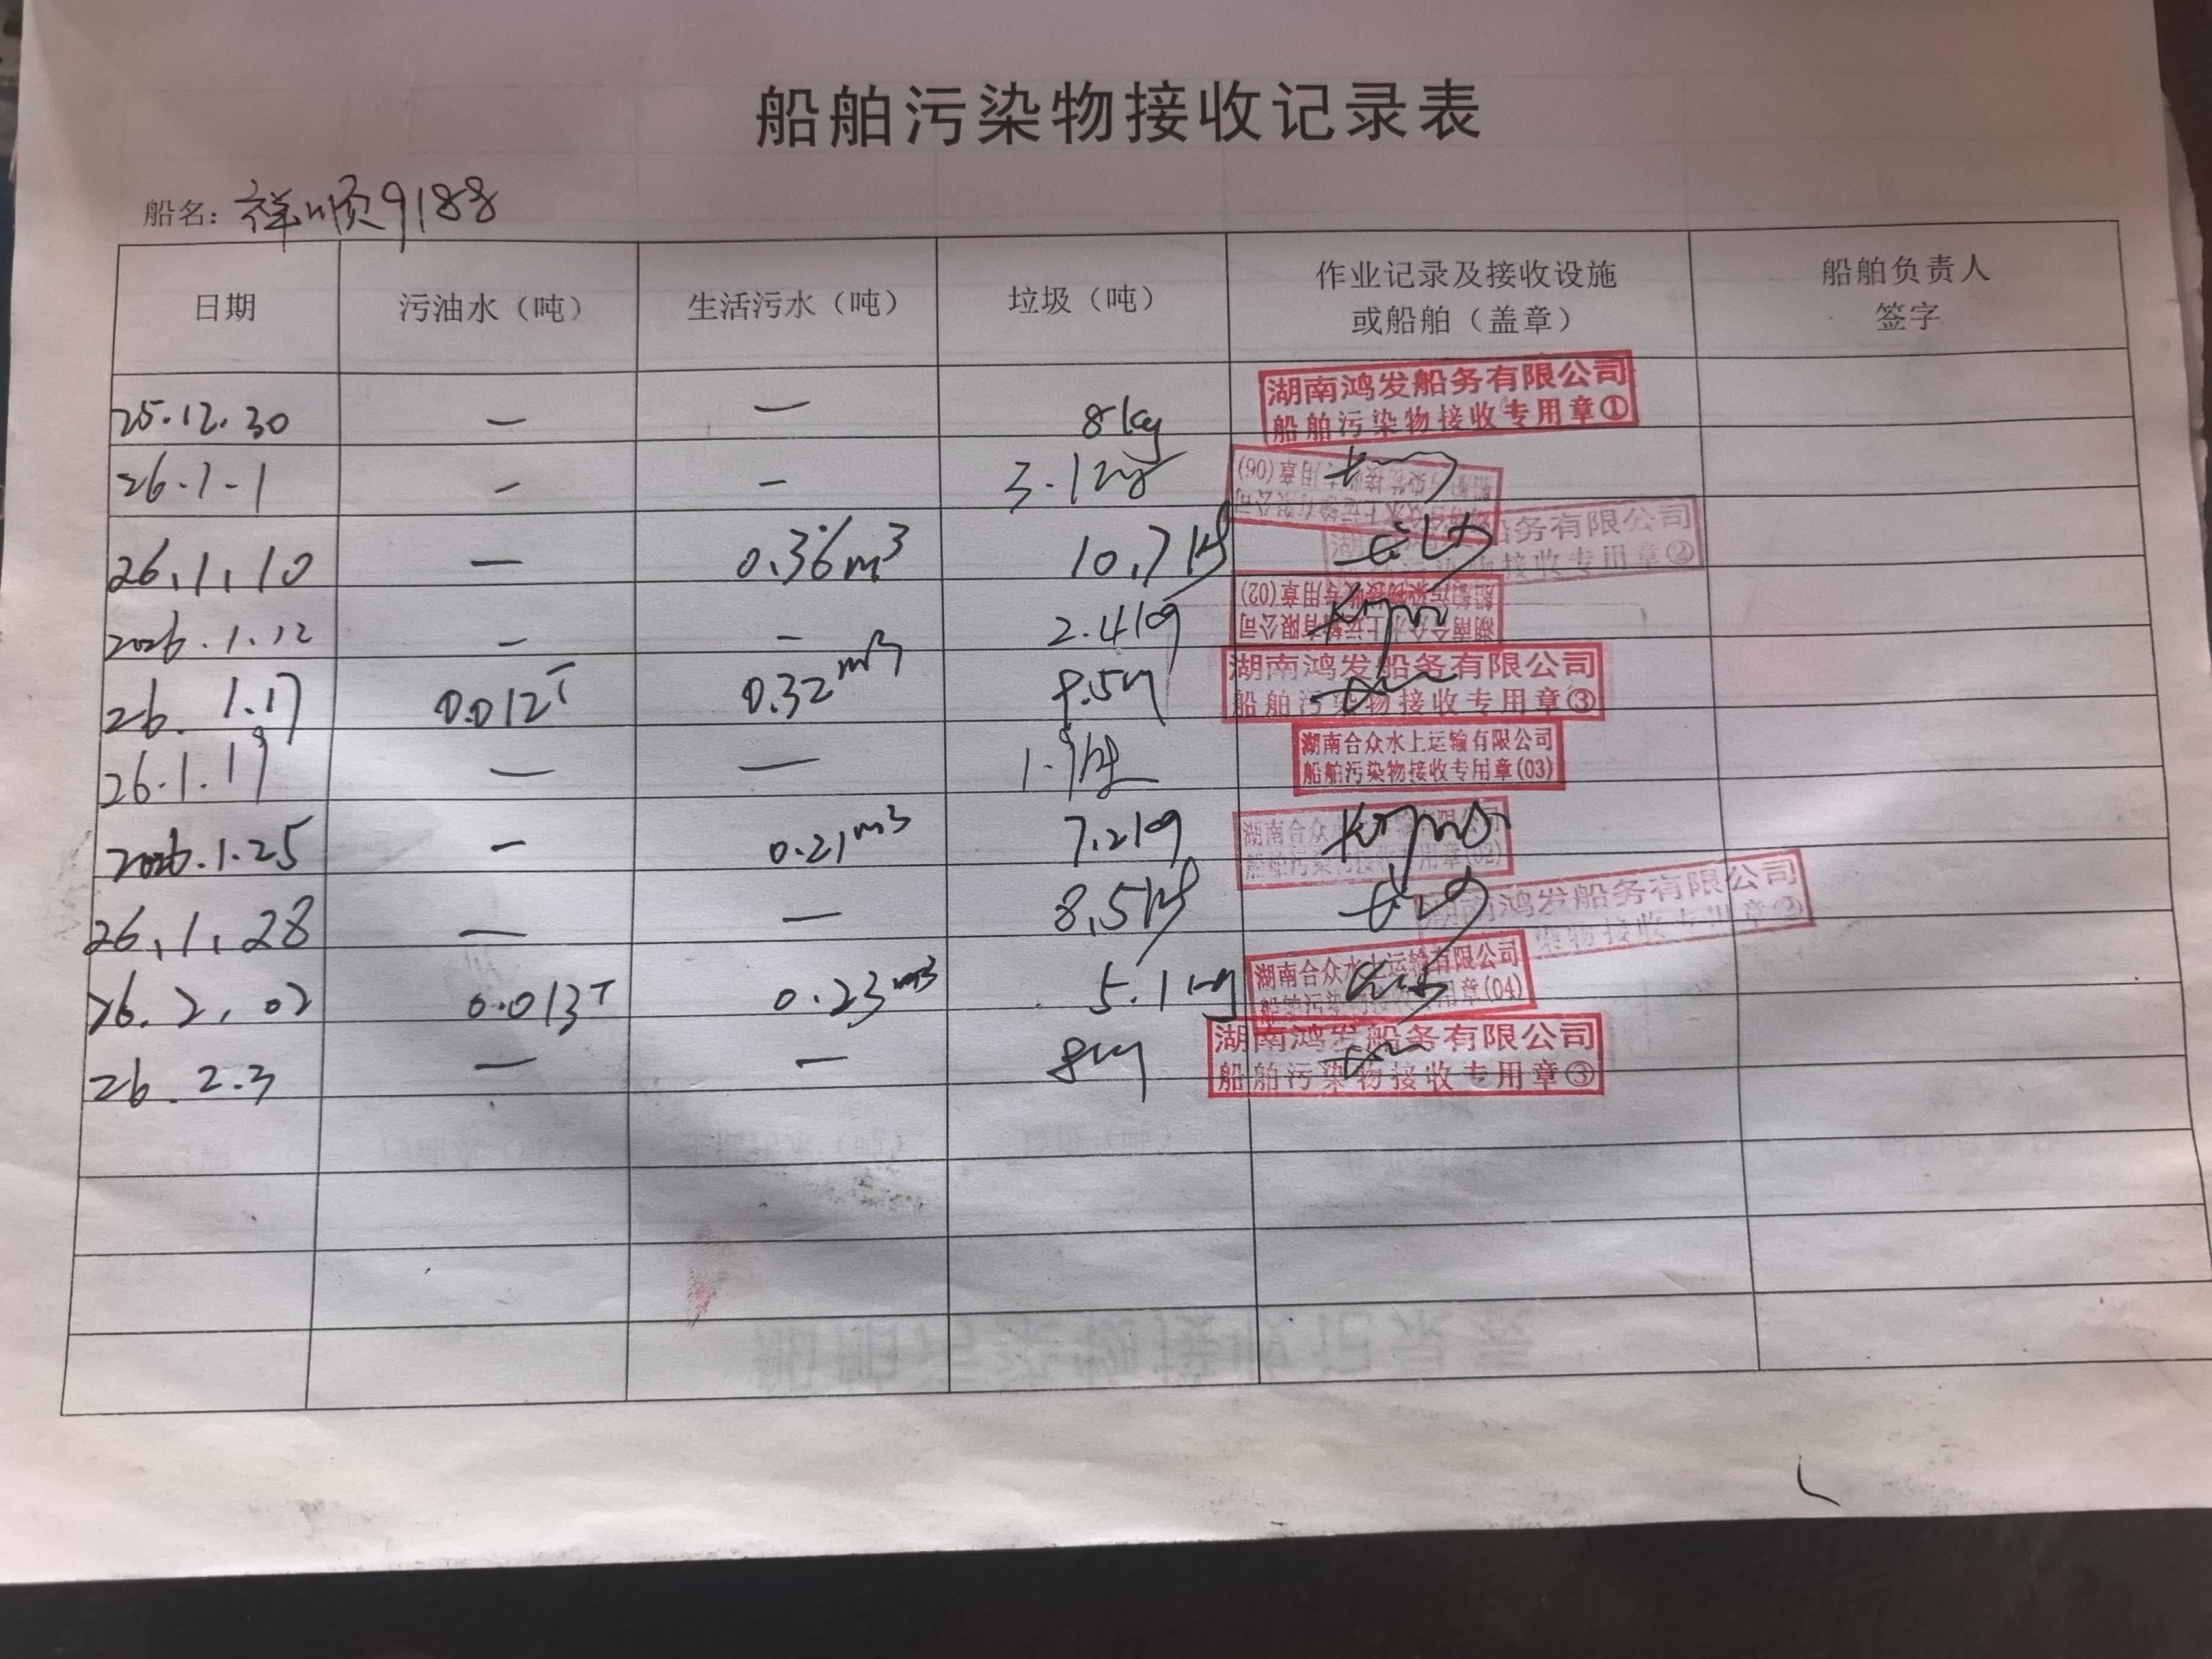 船舶污染物接收记录表
船名：祥顺9188
日期 污油水（吨） 生活污水（吨） 垃圾（吨） 作业记录及接收设施或船舶（盖章） 船舶负责人签字
25.12.30 — — 8kg 湖南鸿发船务有限公司 船舶污染物接收专用章①
26.1-1 - - 3.1kg 船舶污染物接收专用章(06)
26.1.10 — 0.36m³ 10.7kg 船务有限公司 接收专用章②
2026.1.12 - - 2.4kg 湖南合众水上运输有限公司 船舶污染物接收专用章(02)
26.1.17 0.012T 0.32m³ 9.5kg 湖南鸿发船务有限公司 船舶污染物接收专用章③
26.1.19 — — 1.9kg 湖南合众水上运输有限公司 船舶污染物接收专用章(03)
2026.1.25 - 0.21m³ 7.2kg 湖南合众水上运输有限公司 船舶污染物接收专用章(02)
26.1.28 — — 8.5kg 湖南鸿发船务有限公司 染物接收专用章②
26.2.02 0.013T 0.23m³ 5.1kg 湖南合众水上运输有限公司 船舶污染物接收专用章(04)
26.2.3 — — 8kg 湖南鸿发船务有限公司 船舶污染物接收专用章③